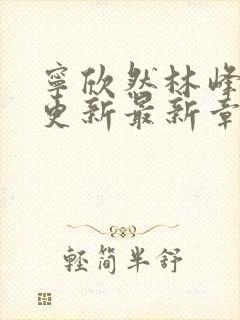 寧欣然林峰
更新最新章
輕簡半舒